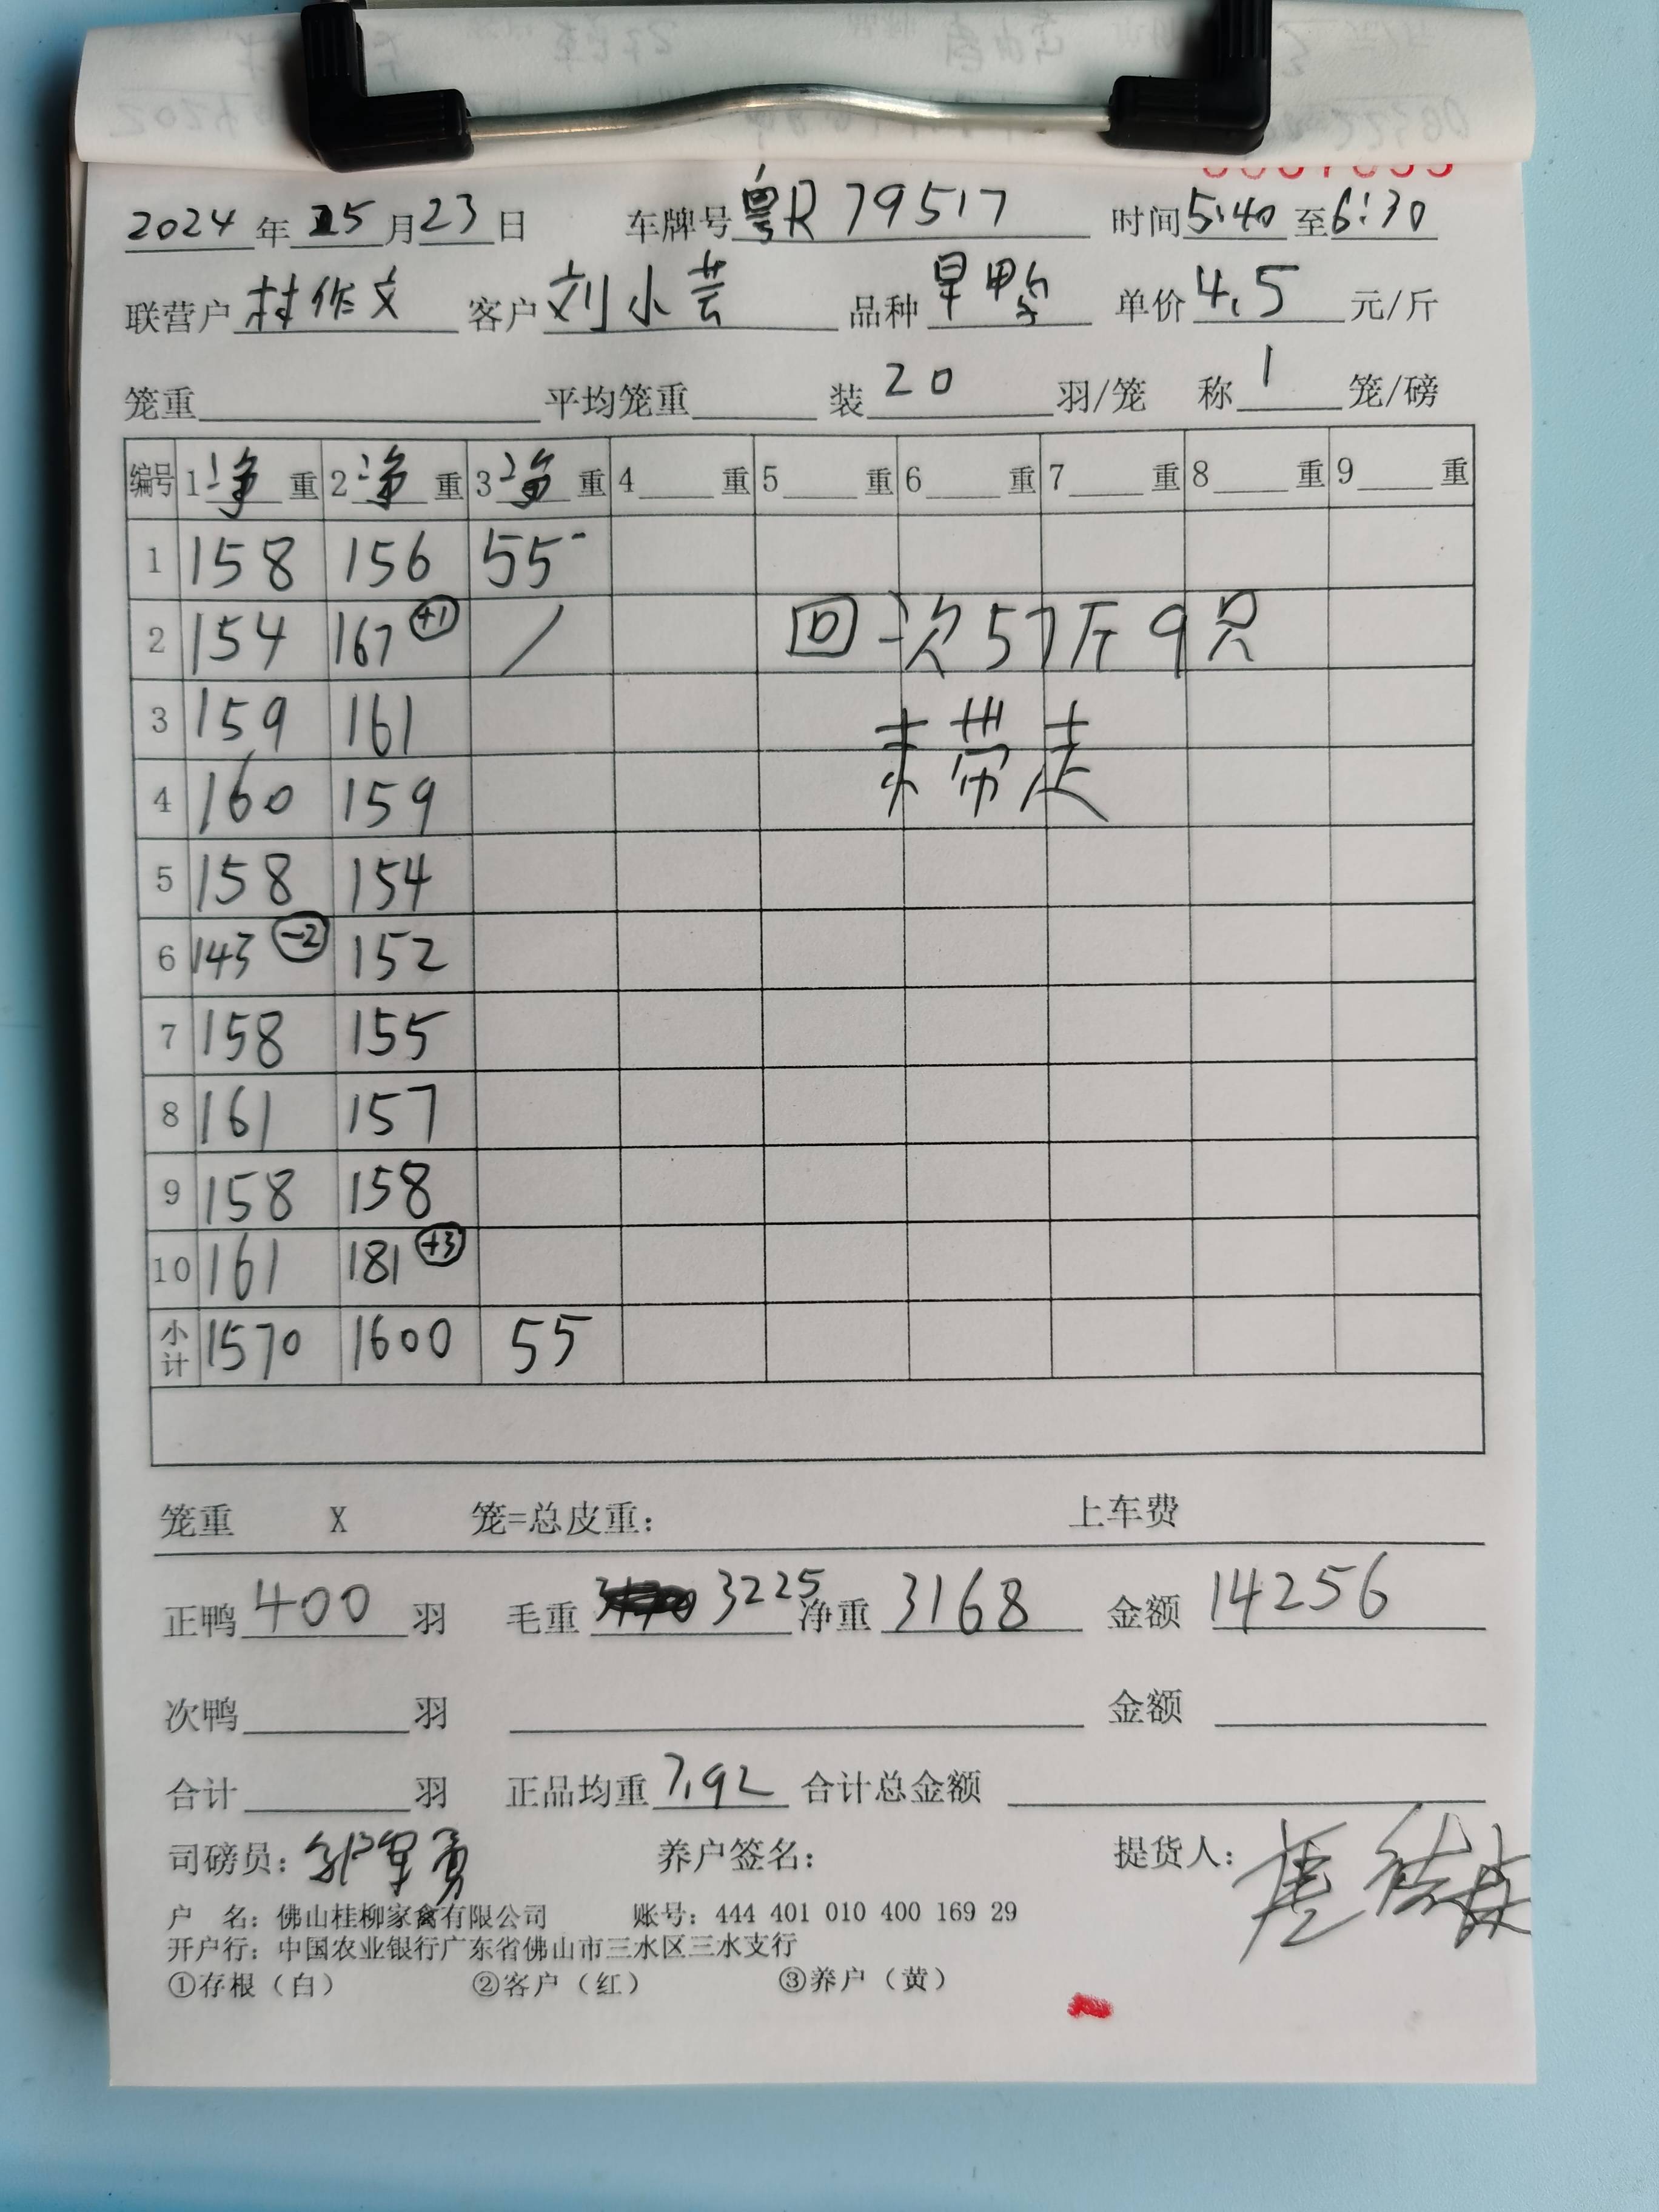 2024年5月23日 车牌号粤R79517 时间5:40至6:30
联营户 林作文 客户 刘小芸 品种 旱鸭 单价4.5元/斤
笼重 平均笼重 装20羽/笼 称1笼/磅
编号 1净重 2净重 3净重 4重 5重 6重 7重 8重 9重
1 158 156 55-
2 154 167 +1 / 回次57斤9只
3 159 161 未带走
4 160 159
5 158 154
6 143 -2 152
7 158 155
8 161 157
9 158 158
10 161 181 +3
小计 1570 1600 55
笼重 X 笼=总皮重: 上车费
正鸭400羽 毛重 3225 净重3168 金额14256
次鸭 羽 金额
合计 羽 正品均重7.92 合计总金额
司磅员: 养户签名: 提货人:
户 名: 佛山桂柳家禽有限公司 账号: 444 401 010 400 169 29
开户行: 中国农业银行广东省佛山市三水区三水支行
①存根（白） ②客户（红） ③养户（黄）